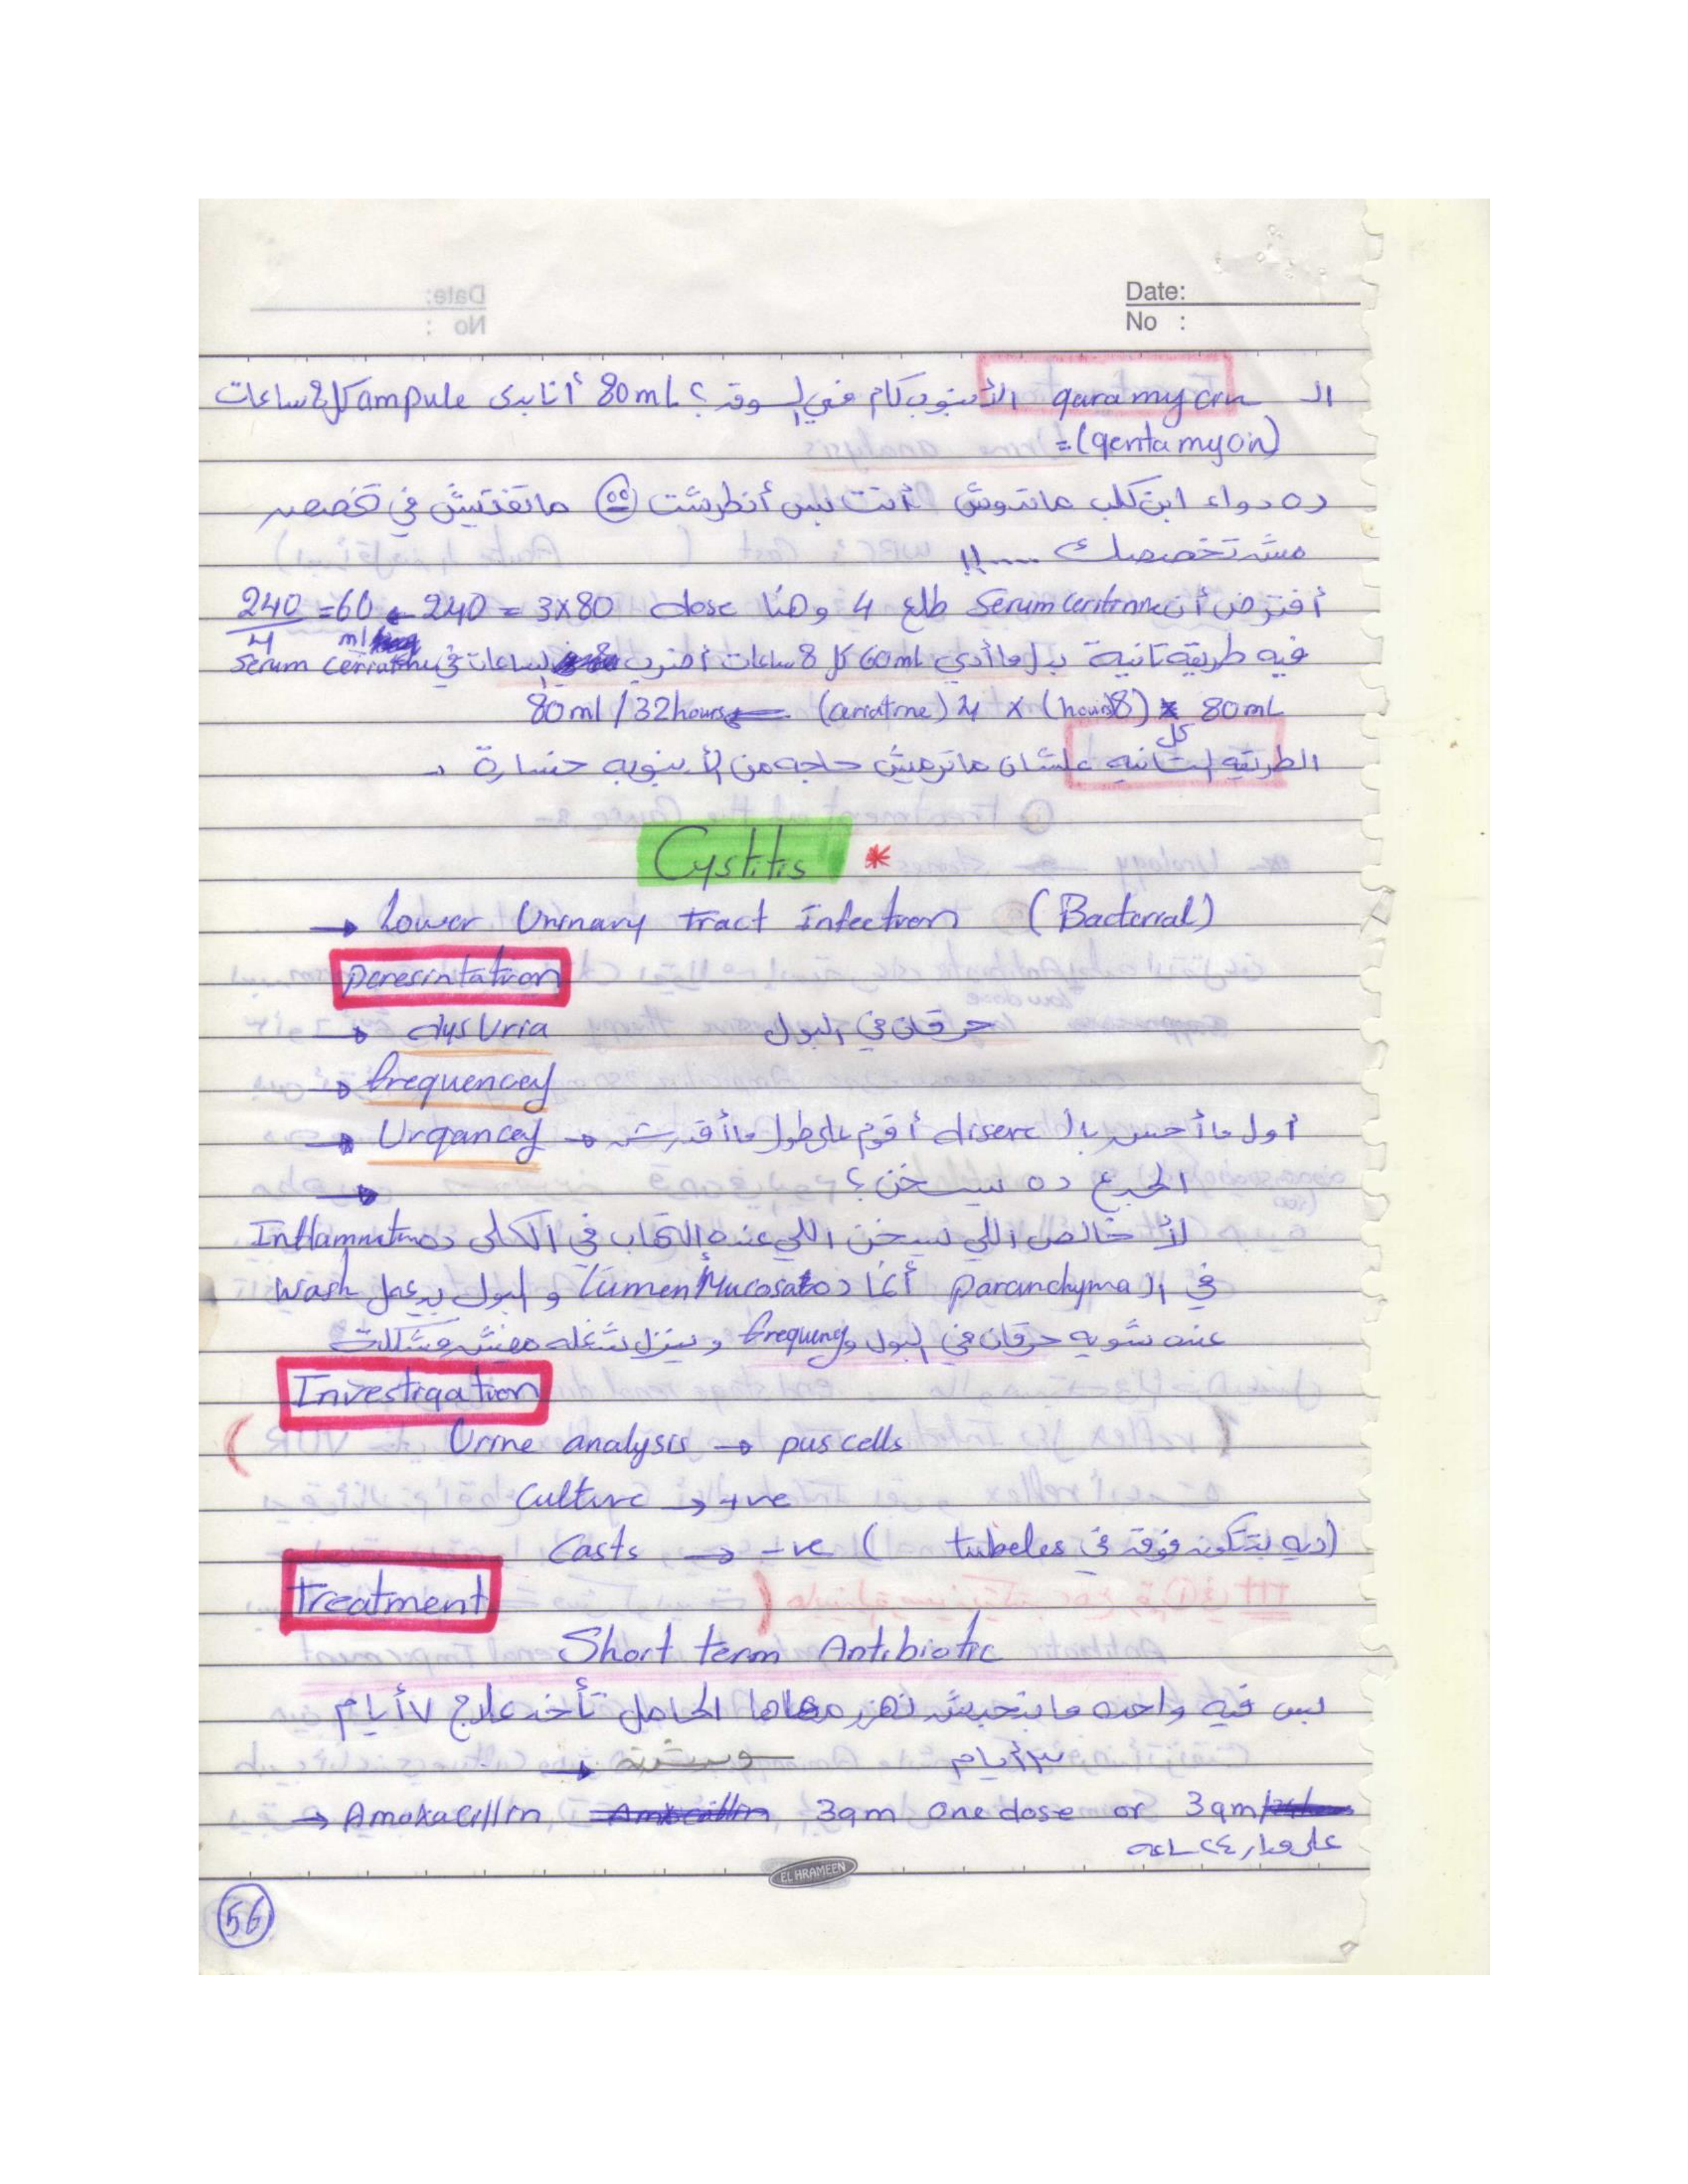 Date:
No :
الـ garamycin الأنبوب كام في السوق؟ 80mL أنا بدى ampule كل 8 ساعات
=(gentamycin)
ده دواء ابن كلب ماتدوش أنت بس أنطرشت ماتفتيش في تخصص
مش تخصصك .....!!
أفترض أن Serum creatinine طلع 4 وهنا dose 3x80 = 240 ← 240/4 =60 ml
فيه طريقة تانية بدل ما أدي 60ml كل 8 ساعات أضرب الساعات في Serum creatinine
80mL كل (8 hours) x 4 (creatinine) 80ml/32hours
الطريقه التانيه علشان ماترميش حاجه من الأنبوبه خسارة
Cystitis *
→ Lower Urinary Tract Infection (Bacterial)
peresintation
→ dysuria حرقان في البول
→ frequencey
→ Urgancey → أول ما أحس بالـ disere أقوم على طول ما أقدرش
→ الجدع ده بيسخن؟
لأ خالص اللي بيسخن اللي عنده إلتهاب في الكلى ده Inflammation
في الـ paranchyma أنما ده Mucosa lumen والبول بيعمل wash
عنده شويه حرقان في البول و frequency وبينزل شغله مفيش مشكلة
Investigation
Urine analysis → pus cells
Culture → +ve
Casts → -ve (ديه بتتكون فوق في tubeles)
Treatment
Short term Antibiotic
بس فيه واحده مابنحبش نهزر معاها الحامل تأخد علاج ٧ أيام
٣ أيام
→ Amoxacillin 3gm one dose or 3gm
على مدار ٢٤ ساعه
EL HRAMEEN
56